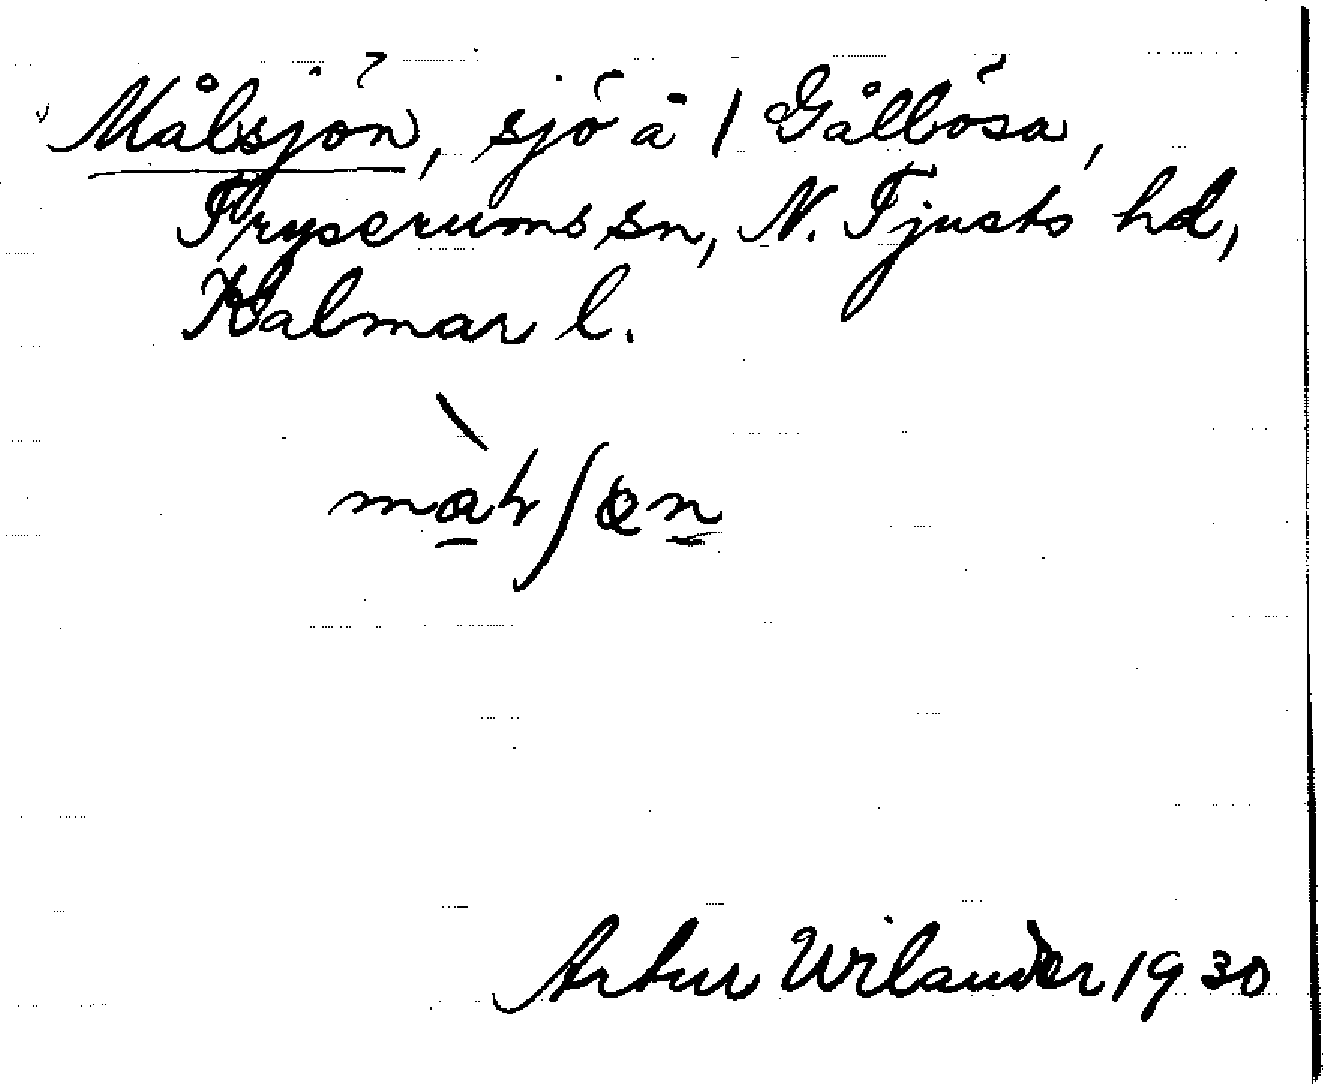 Målsjön, sjö å 1 Gållösa,
Tryserums sn, N. Tjusts hd,
Kalmar l.
Artur Wilander 1930